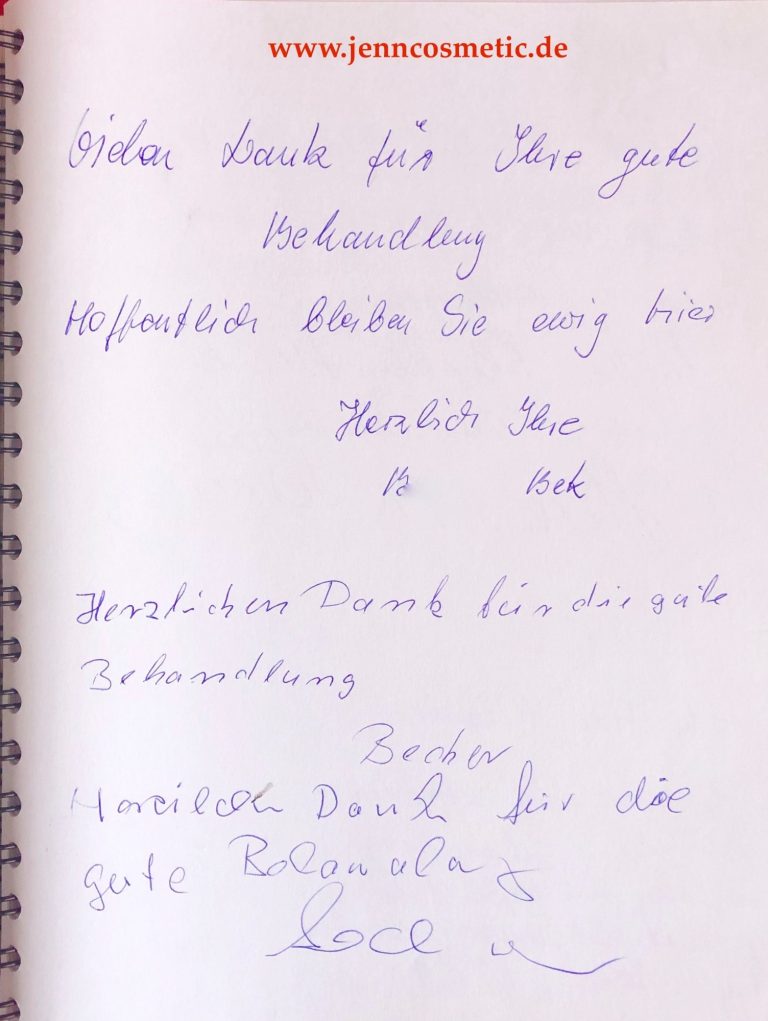 www.jenncosmetic.de
Vielen Dank für Ihre gute
Behandlung
Hoffentlich bleiben Sie ewig hier
Herzlich Ihre
B Bek
Herzlichen Dank für die gute
Behandlung
Becher
Dank für die
gute